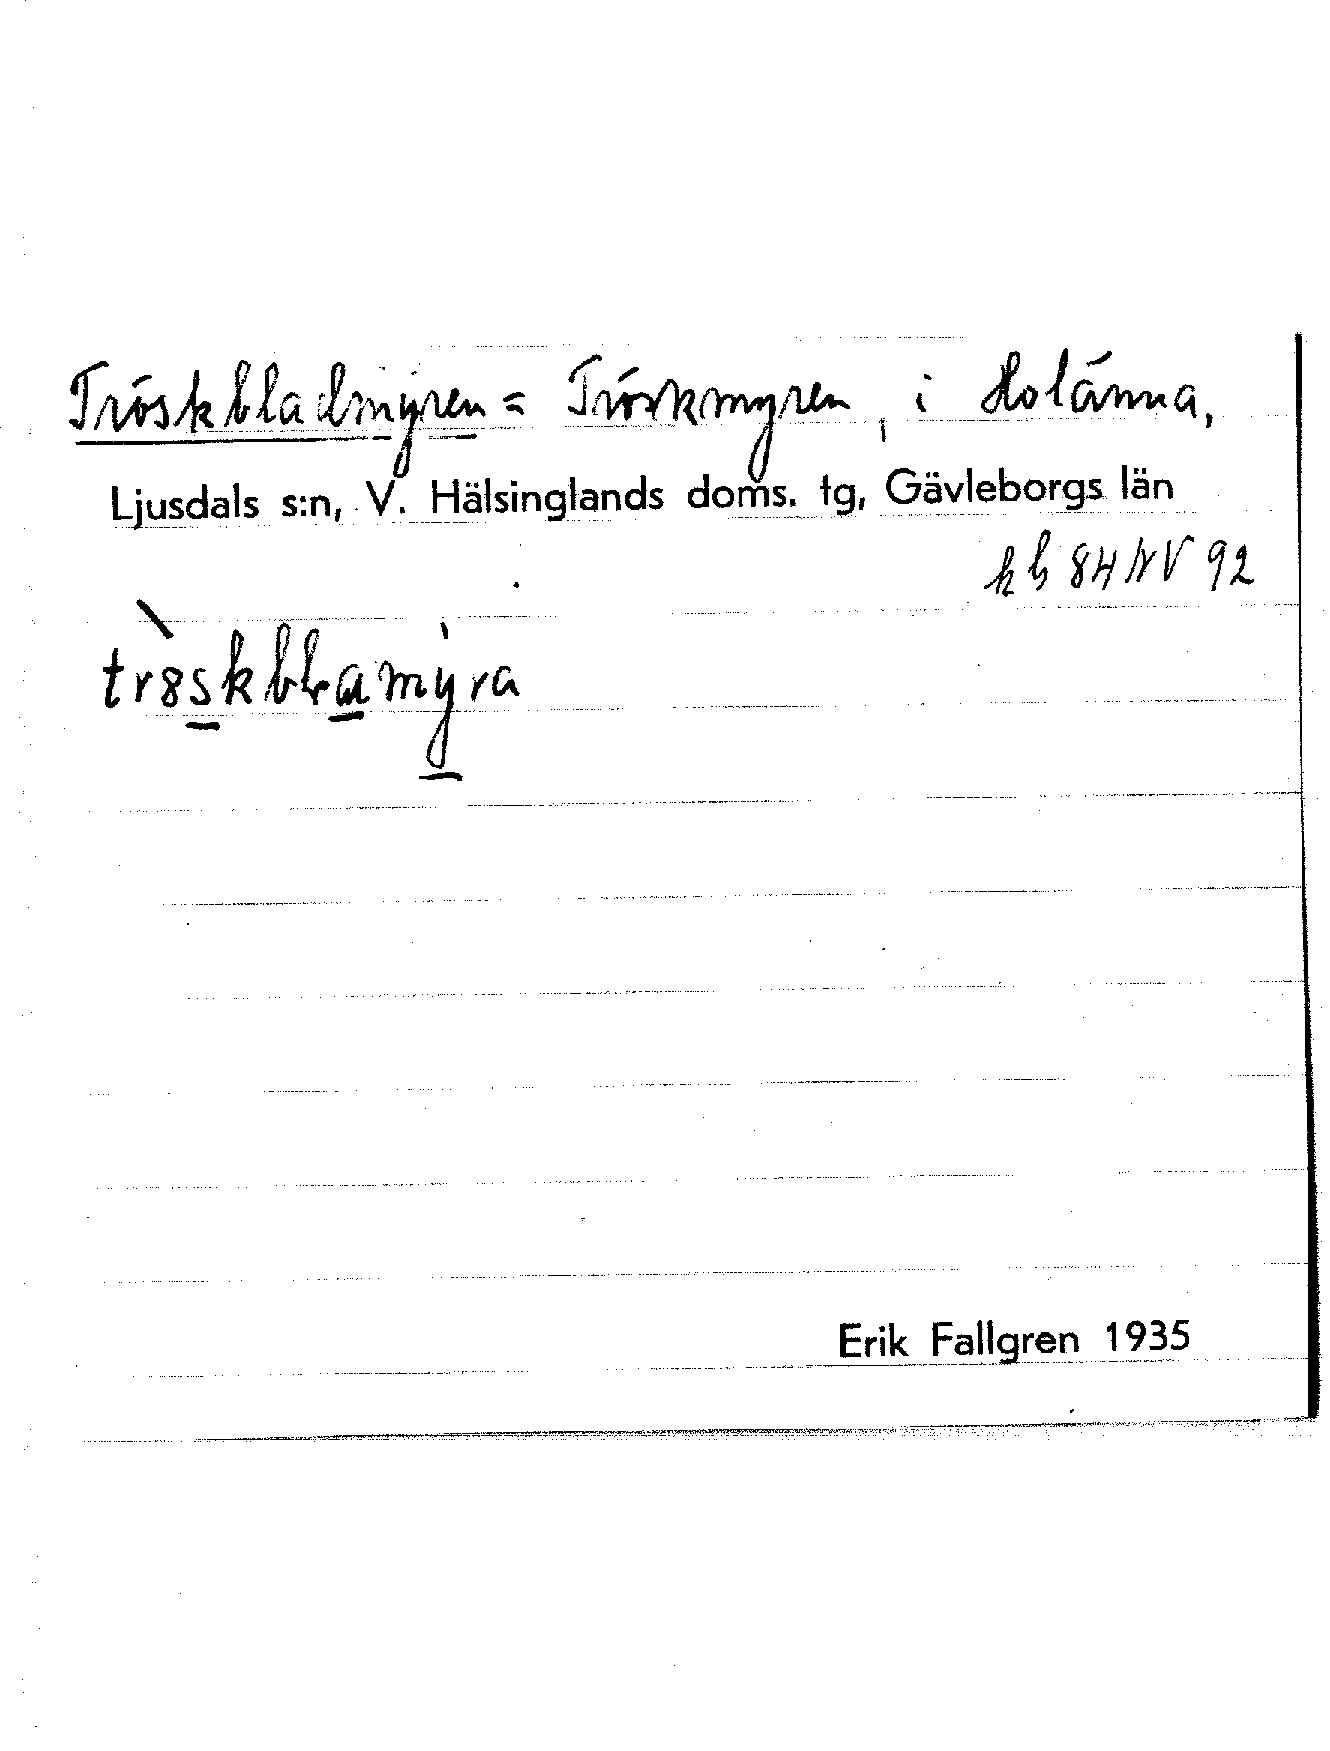 Tröskbladmyren = Tröskmyren, i Holänna,
Ljusdals s:n, V. Hälsinglands doms. tg, Gävleborgs län
kb 84 NV 92
trɞskblamyra
Erik Fallgren 1935